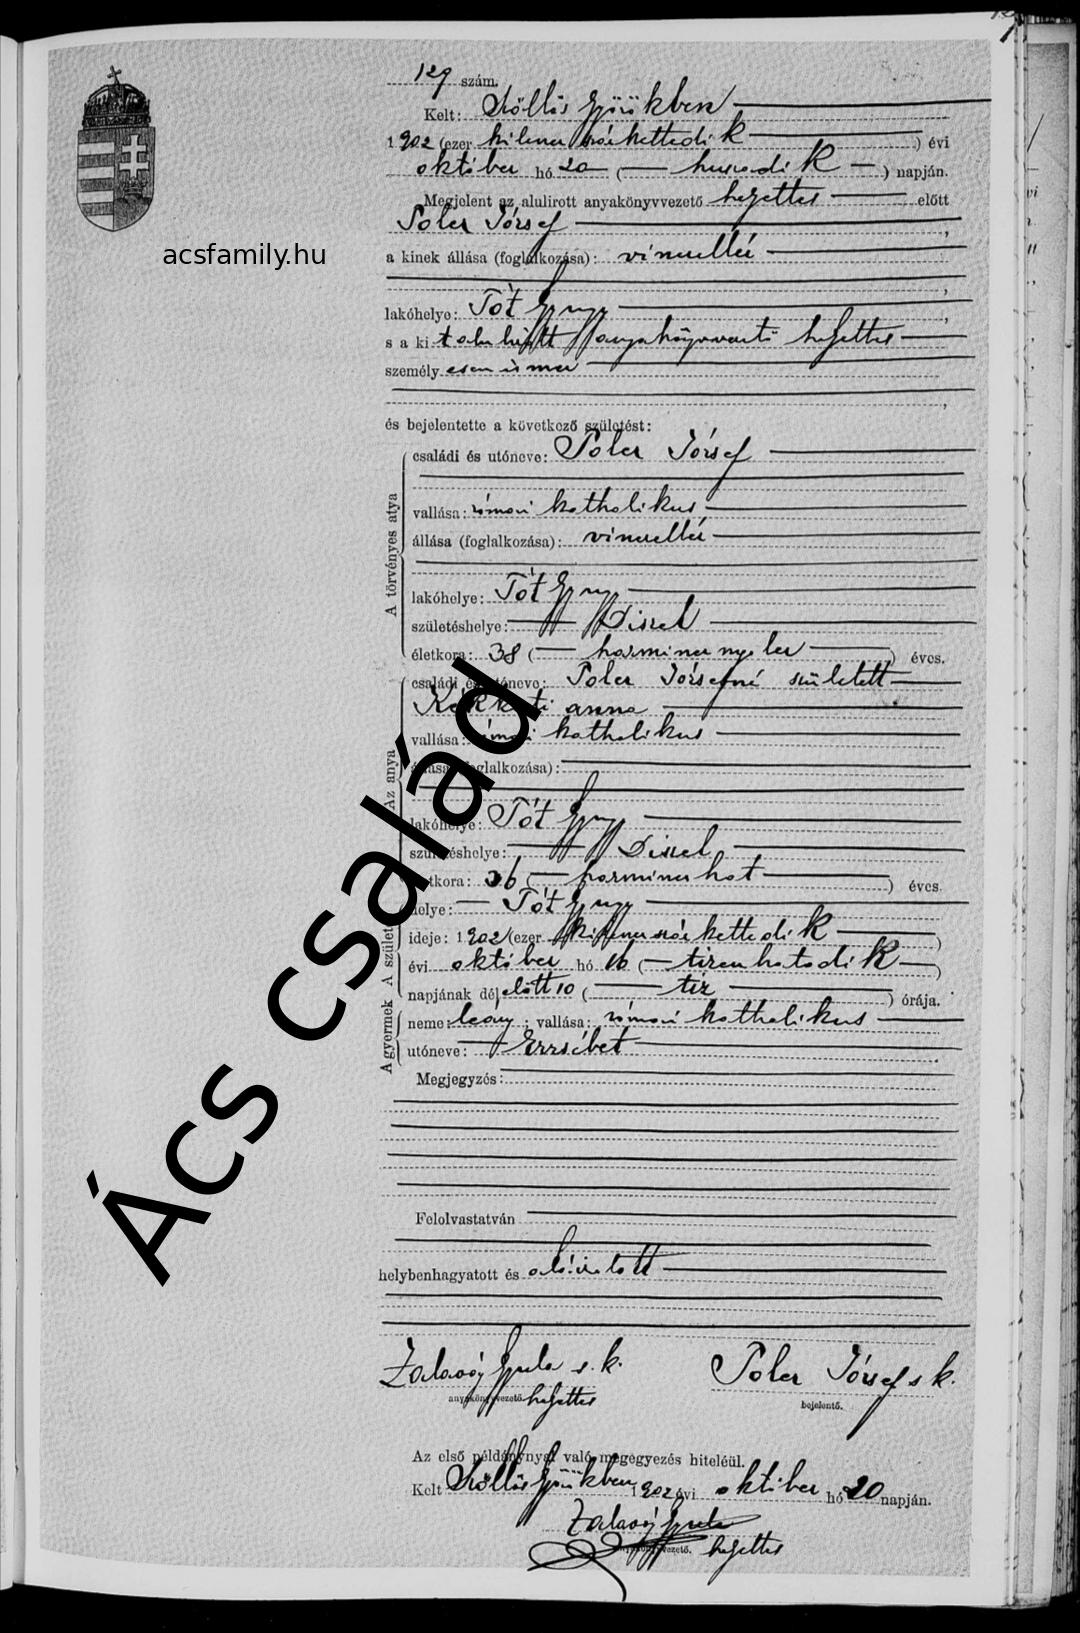 129 szám.
Kelt: Szőllős Györökben
1902 (ezer kilencszázkettedik) évi
október hó 20 (huszadik) napján.
Megjelent az alulirott anyakönyvvezető helyettes előtt
Poler József
a kinek állása (foglalkozása): vinczellér
lakóhelye: Tót
s a kit alulirott anyakönyvvezető helyettes
személyesen ismer
és bejelentette a következő születést:
A törvényes atya
családi és utóneve: Poler József
vallása: római katholikus
állása (foglalkozása): vinczellér
lakóhelye: Tót
születéshelye: Diszel
életkora: 38 (harmincznyolcz) éves.
Az anya
családi és utóneve: Poler Józsefné született
anna
vallása: római katholikus
állása (foglalkozása):
lakóhelye: Tót
születéshelye: Diszel
életkora: 36 (harminczhat) éves.
A születés
helye: Tót
ideje: 1902 (ezer kilenczszázkettedik)
évi október hó 16 (tizenhatodik)
napjának délelőtt 10 (tíz) órája.
A gyermek
neme: leány; vallása: római katholikus
utóneve: Erzsébet
Megjegyzés:
Felolvastatván
helybenhagyatott és aláíratott
Zalaváy Gyula s. k. Poler József s k.
anyakönyvvezető helyettes bejelentő.
Az első példánynyal való megegyezés hiteléül.
Kelt Szőllős Györökben 1902 évi október hó 20 napján.
Zalaváy Gyula
anyakönyvvezető. helyettes
acsfamily.hu
Ács család